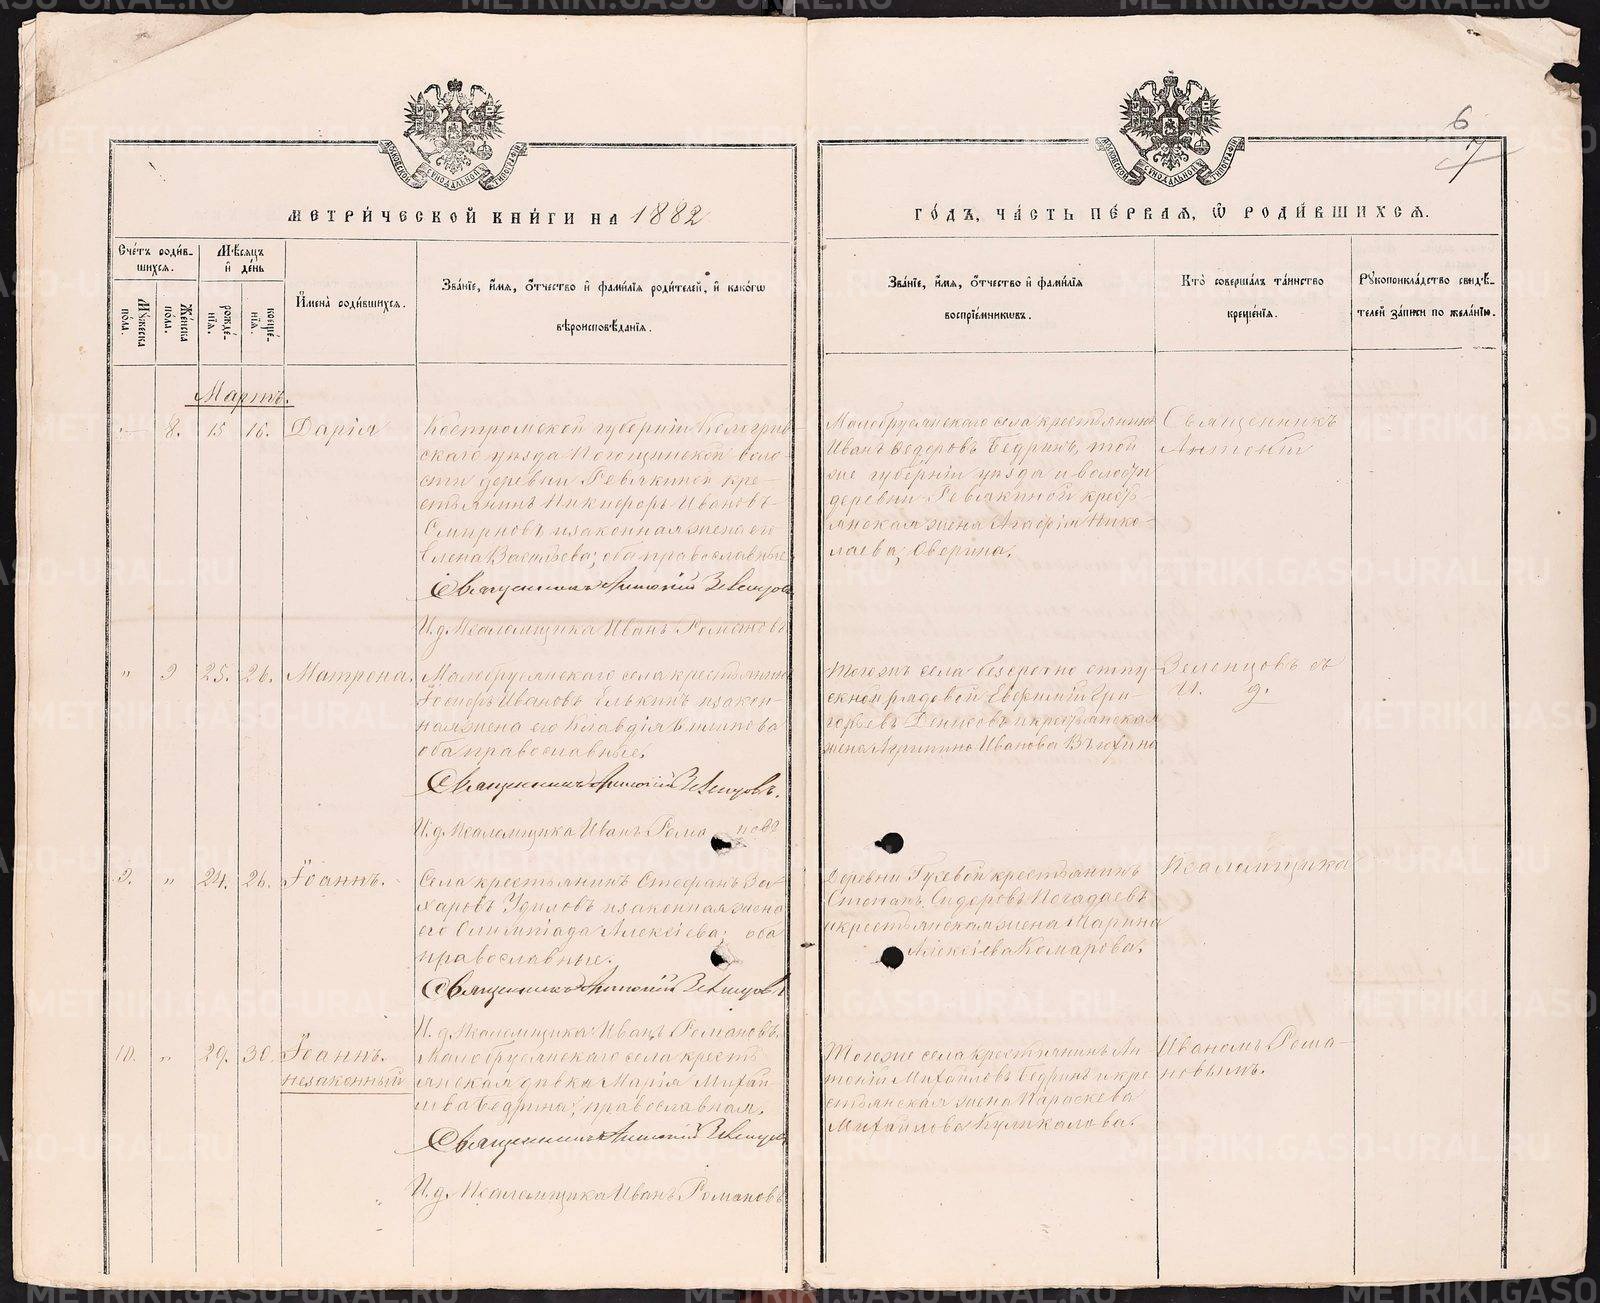 МЕТРИ́ЧЕСКОЙ КНИ́ГИ НА 1882
ГО́ДЪ, ЧА́СТЬ ПЕ́РВАЯ, Ѡ РОДИ́ВШИХСЯ.
6
7
МОСКОВСКОЙ СѴНОДАЛЬНОЙ ТИПОГРАФІИ
МОСКОВСКОЙ СѴНОДАЛЬНОЙ ТИПОГРАФІИ
Счетъ родившихся.
Мужеска пола.
Женска пола.
Мѣсяцъ и день
рожденія.
крещенія.
Имена родившихся.
Званіе, имя, отчество и фамилія родителей, и какогѡ
вѣроисповѣданія.
Званіе, имя, отчество и фамилія
воспріемниковъ.
Кто совершалъ таинство
крещенія.
Рукоприкладство свидѣ-
телей записи по желанію.
Мартъ.
8. 15 16. Дарія
Костромской губерніи Кологрив-
скаго уѣзда
воло-
сти деревни Ревякиной кре-
стьянинъ Никифоръ Ивановъ
Смирновъ и законная жена его
Елена Васильева; оба православные.
Священникъ Антоній Зеленцовъ
И. д. Псаломщика Иванъ Романовъ
Малобрусянскаго села крестьянинъ
Иванъ Ѳедоровъ Бедринъ, той
же губерніи уѣзда и волости
деревни Ревякиной кресть-
янская жена Агафія Нико-
лаева, Оверина.
Священникъ
Антоній
„ 9 25. 26. Матрона.
Малобрусянскаго села крестьянинъ
Іосифъ Ивановъ Елькинъ и закон-
ная жена его Клавдія
оба православные.
Священникъ Антоній Зеленцовъ.
И. д. Псаломщика Иванъ Романовъ
Тогожъ села безсрочно отпу-
скной рядовой Евфимій Гри-
горьевъ и крестьянская
жена Агрипина Иванова
Зеленцовъ съ
И. д.
9. „ 24. 26. Іоаннъ.
Села крестьянинъ Стефанъ За-
харовъ и законная жена
его Олимпіада Алексіева; оба
православные.
Священникъ Антоній Зеленцовъ
И. д. Псаломщика Иванъ Романовъ.
Деревни Гусевой крестьянинъ
Степанъ Сидоровъ Погадаевъ
и крестьянская жена Марина
Алексіева Комарова.
Псаломщика
10. „ 29. 30. Іоаннъ.
незаконный
Малобрусянскаго села кресть-
янская дѣвка Марія Михаи-
лова Бедрина; православная.
Священникъ Антоній Зеленцовъ
И. д. Псаломщика Иванъ Романовъ
Тогоже села крестьянинъ Ан-
тоній Михаиловъ Бедринъ и кре-
стьянская жена Параскева
Михаилова Куликалова.
Иваномъ Рома-
новымъ.
METRIKI.GASO-URAL.RU